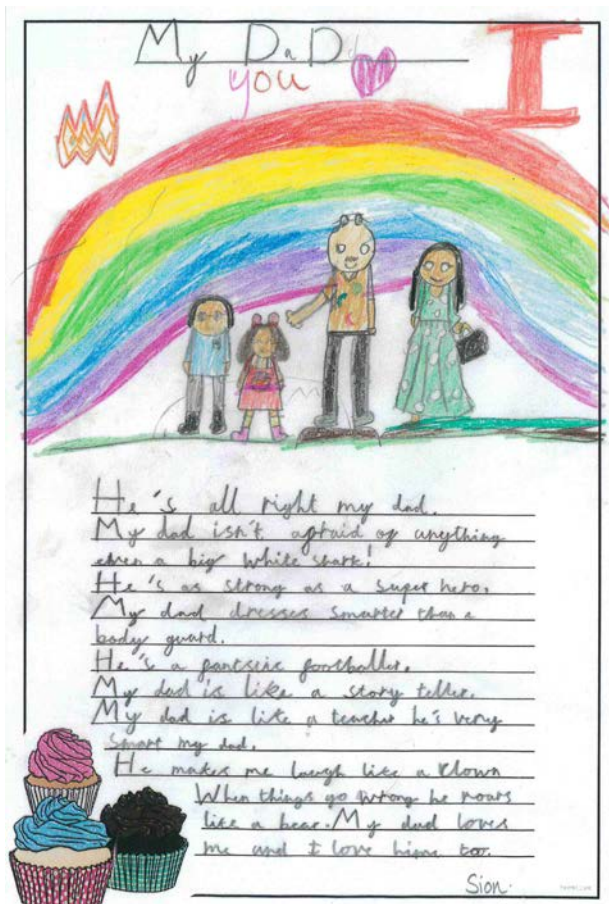 My DaD
you
I
He's all right my dad.
My dad isn't afraid of anything
even a big white shark!
He's as strong as a super hero.
My dad dresses smarter than a
body guard.
He's a fantsic footballer.
My dad is like a story teller.
My dad is like a teacher he's very
smart my dad.
He makes me laugh like a klown
When things go wrong he roars
like a bear. My dad loves
me and I love hime too.
Sion.